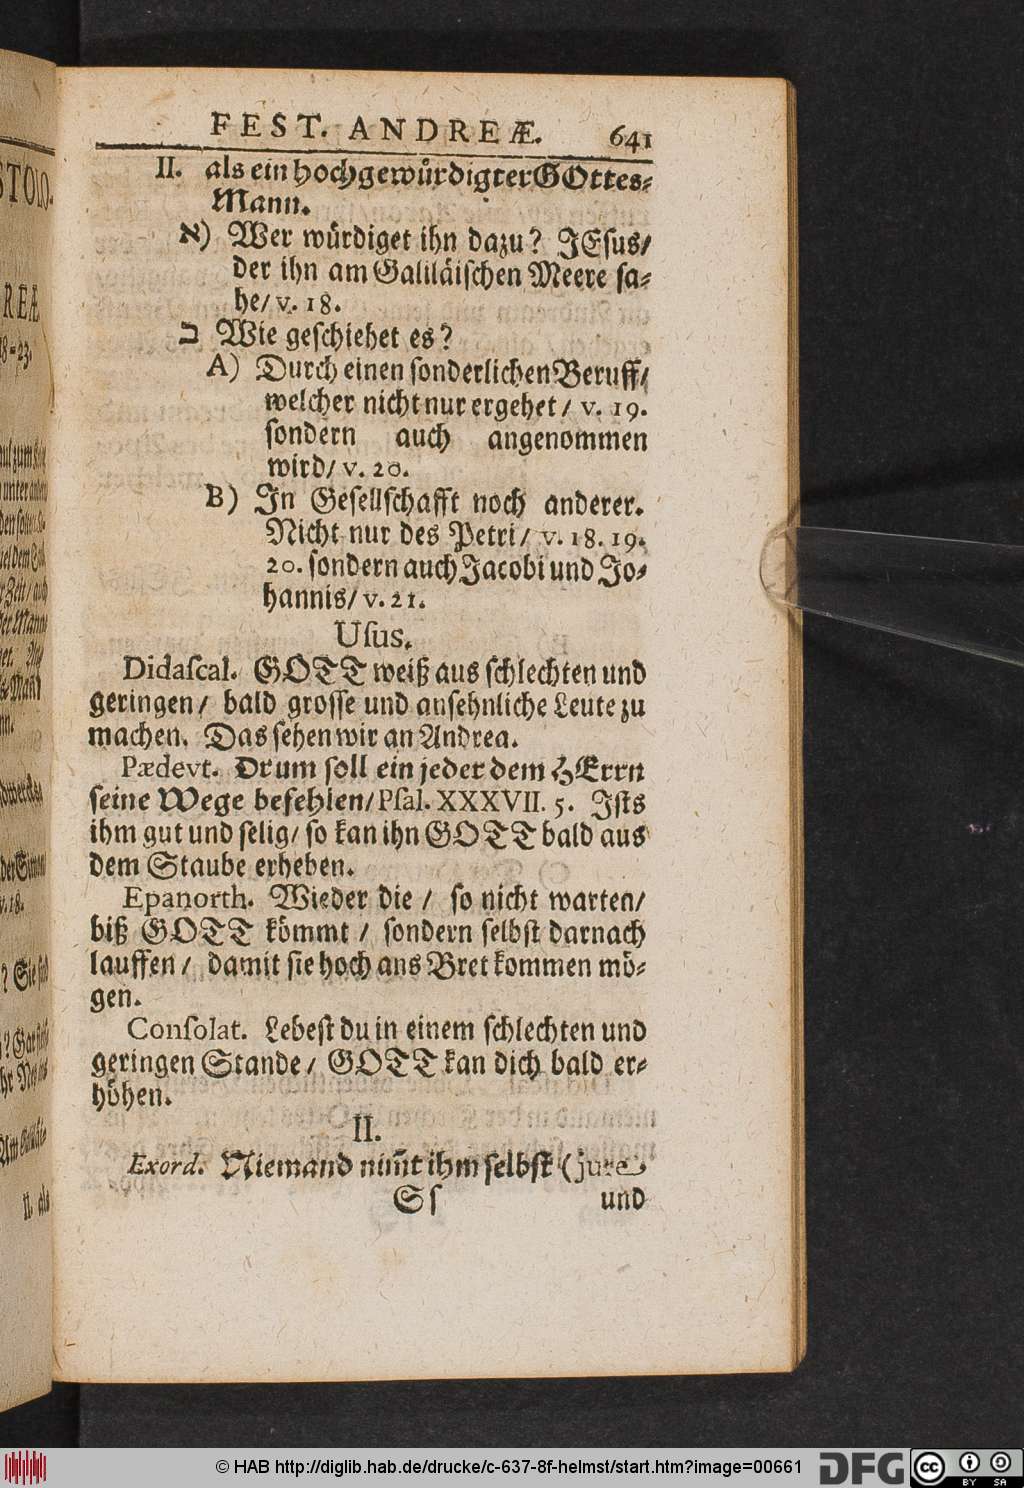 FEST. ANDREÆ. 641
II. als ein hochgewürdigter GOttes-
Mann.
א) Wer würdiget ihn dazu? JEsus/
der ihn am Galiläischen Meere sa-
he/ v. 18.
ב Wie geschiehet es?
A) Durch einen sonderlichen Beruff/
welcher nicht nur ergehet/ v. 19.
sondern auch angenommen
wird/ v. 20.
B) In Gesellschafft noch anderer.
Nicht nur des Petri/ v. 18. 19.
20. sondern auch Jacobi und Jo-
hannis/ v. 21.
Usus.
Didascal. GOTT weiß aus schlechten und
geringen/ bald grosse und ansehnliche Leute zu
machen. Das sehen wir an Andrea.
Pædevt. Drum soll ein jeder dem HErrn
seine Wege befehlen/ Psal. XXXVII. 5. Ists
ihm gut und selig/ so kan ihn GOTT bald aus
dem Staube erheben.
Epanorth. Wieder die/ so nicht warten/
biß GOTT kömmt/ sondern selbst darnach
lauffen/ damit sie hoch ans Bret kommen mö-
gen.
Consolat. Lebest du in einem schlechten und
geringen Stande/ GOTT kan dich bald er-
höhen.
II.
Exord. Niemand nim̃t ihm selbst (jure)
Ss und
STOLO.
REÆ
18-23.
v. 18.
? Sie sind
II. als
© HAB http://diglib.hab.de/drucke/c-637-8f-helmst/start.htm?image=00661
DFG
cc
BY SA